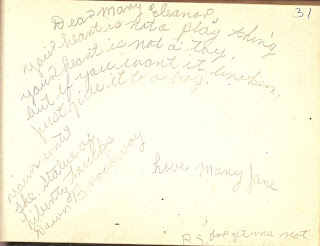 31
Dear Mary Eleanor
your heart is not a play thing
your heart is not a toy,
but if you want it broken,
just give it to a boy.
yours until
the Statue of
Liberty
down Broadway
love Mary Jane
P.S. forget me not